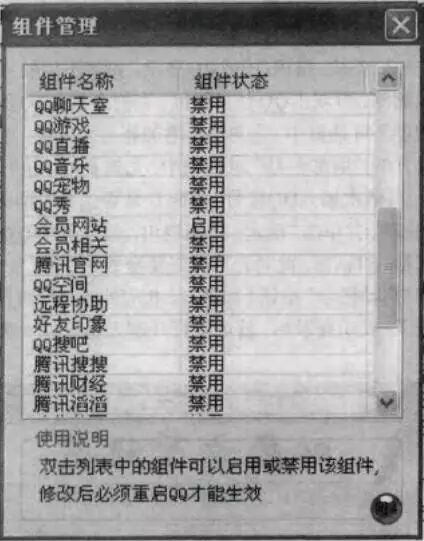 组件管理
组件名称 组件状态
QQ聊天室 禁用
QQ游戏 禁用
QQ直播 禁用
QQ音乐 禁用
QQ宠物 禁用
QQ秀 禁用
会员网站 启用
会员相关 禁用
腾讯官网 禁用
QQ空间 禁用
远程协助 禁用
好友印象 禁用
QQ搜吧 禁用
腾讯搜搜 禁用
腾讯财经 禁用
腾讯滔滔 禁用
使用说明
双击列表中的组件可以启用或禁用该组件,
修改后必须重启QQ才能生效